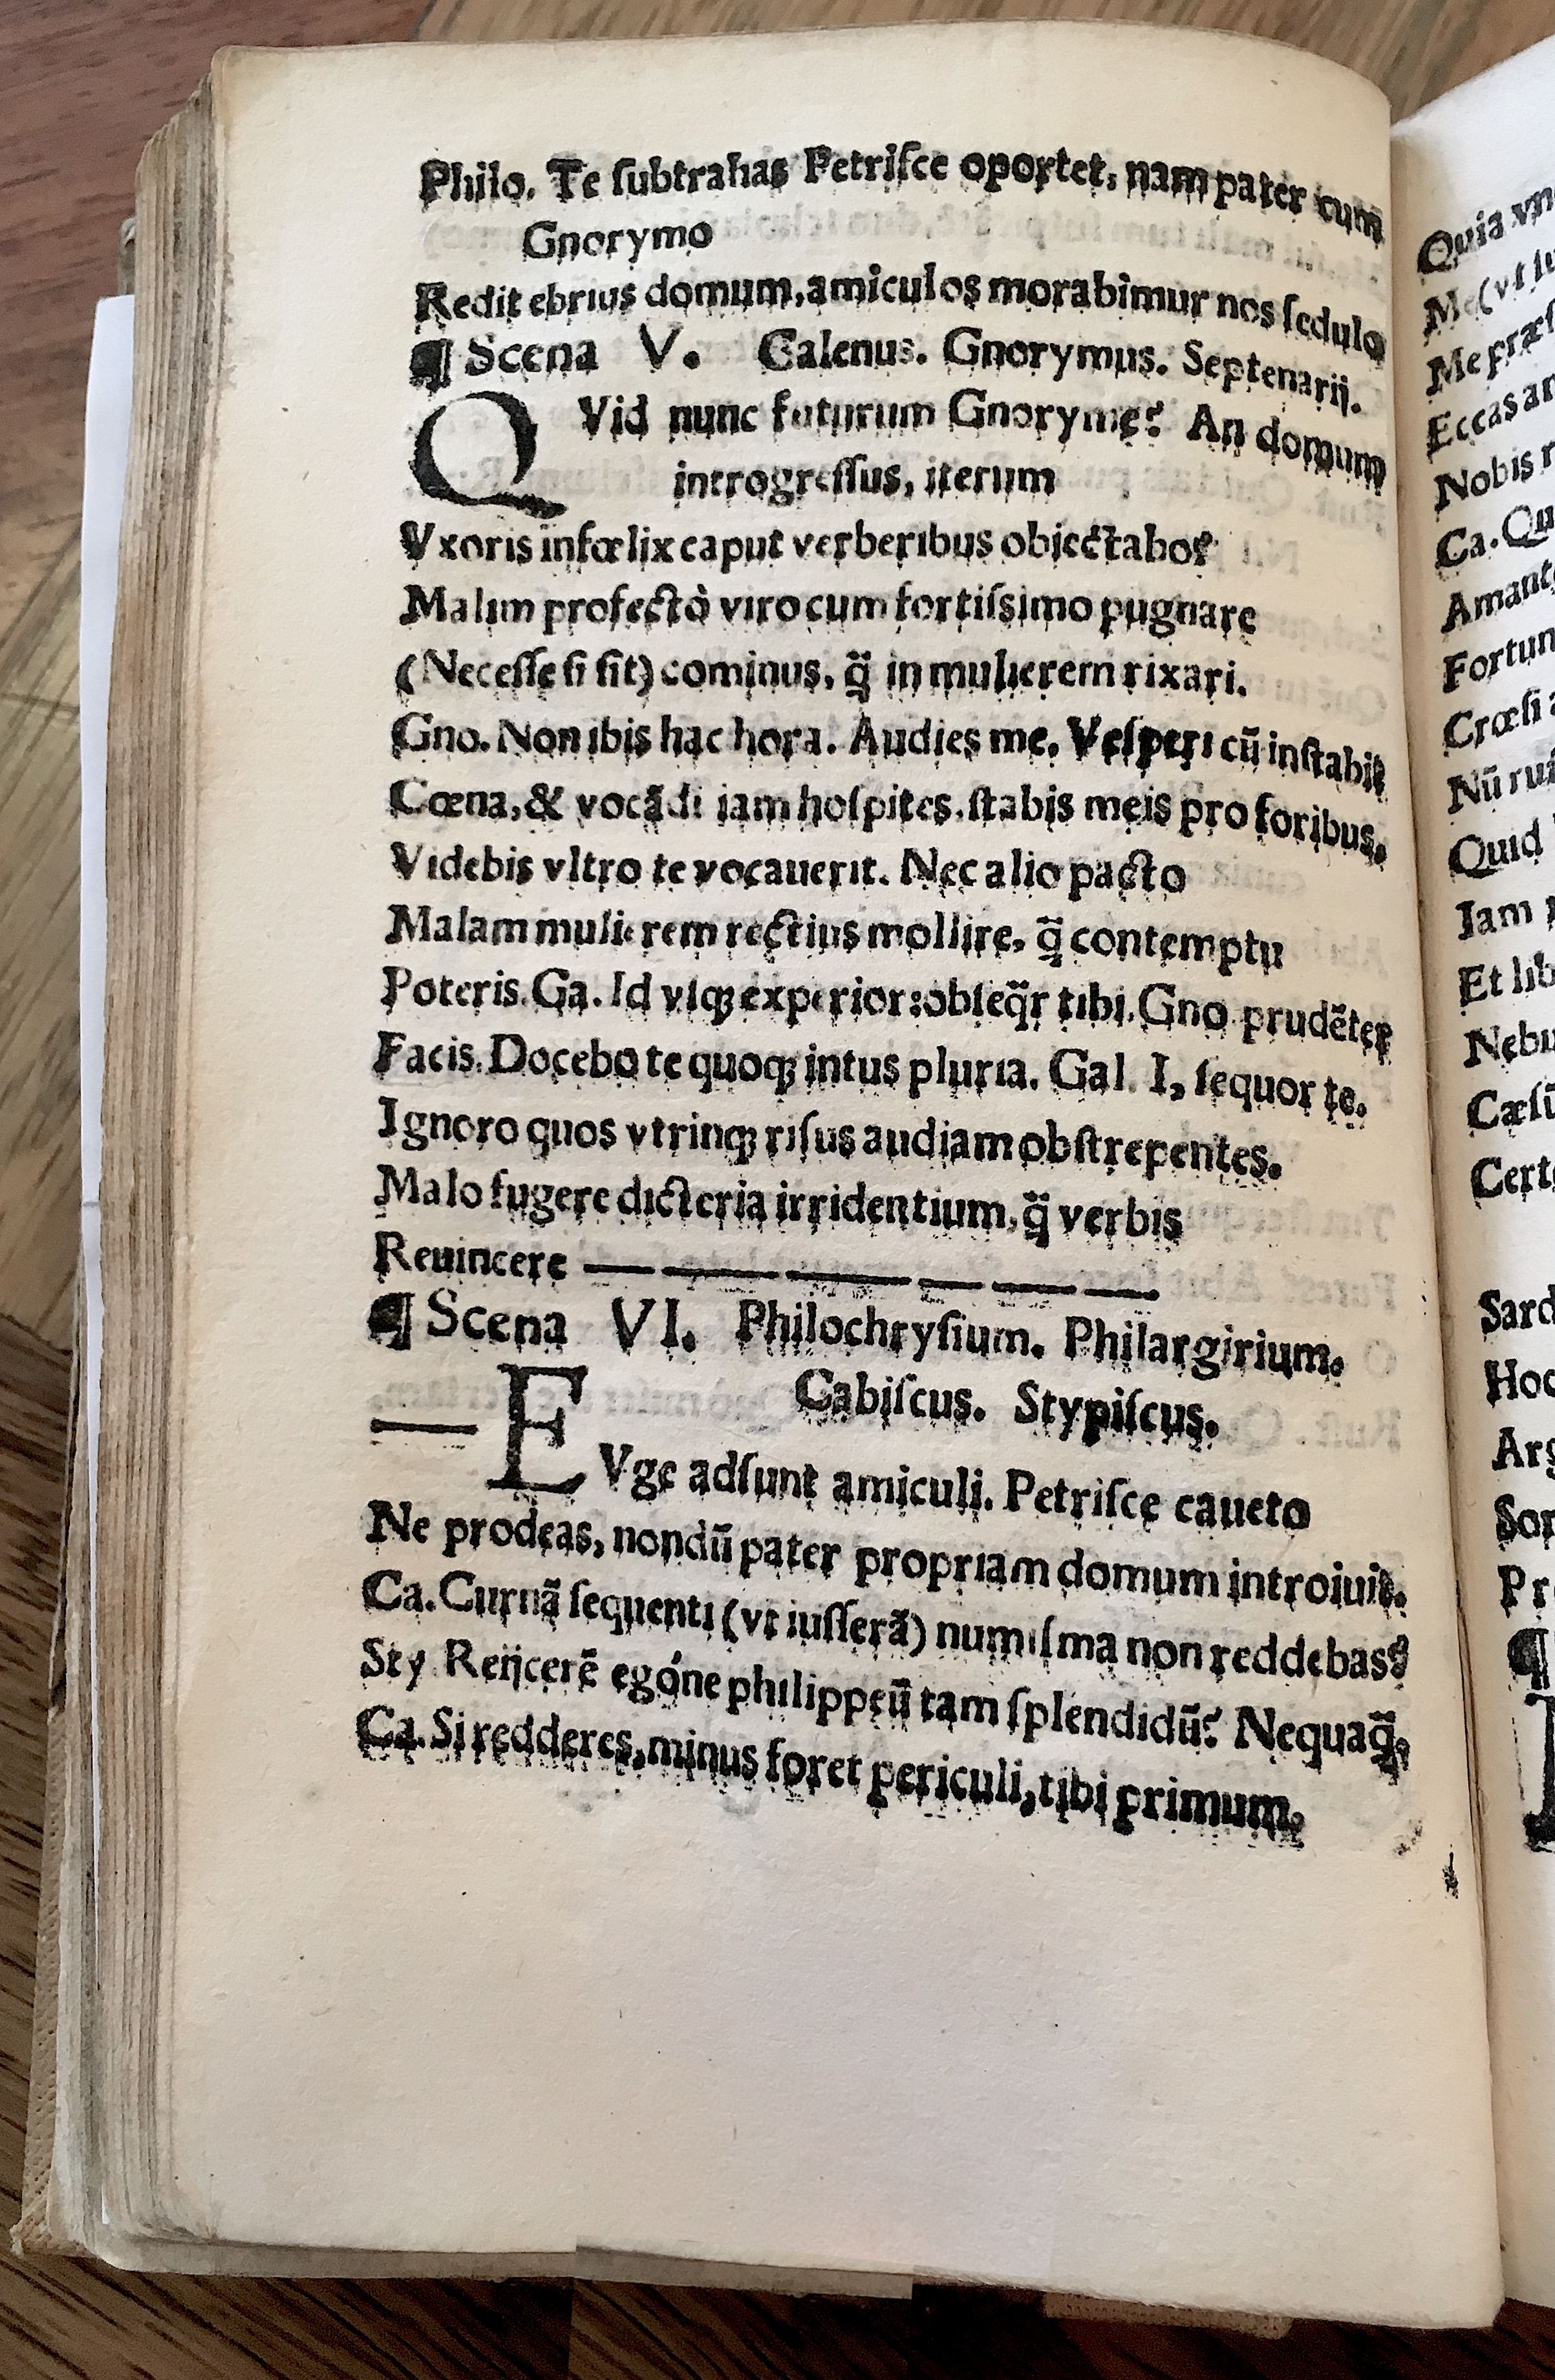 Philo. Te ſubtrahas Petriſce oportet, nam pater cum
Gnorymo
Redit ebrius domum, amiculos morabimur nos ſedulo
¶ Scena V. Galenus. Gnorymus. Septenarij.
QVid nunc futurum Gnoryme? An domum
introgreſſus, iterum
Vxoris infœlix caput verberibus obiectabo?
Malim profectò viro cum fortiſsimo pugnare
(Neceſſe ſi ſit) cominus, q̃ in mulierem rixari.
Gno. Non ibis hac hora. Audies me. Veſperi cũ inſtabit
Cœna, & vocãdi iam hoſpites. ſtabis meis pro foribus.
Videbis vltro te vocauerit. Nec alio pacto
Malam mulierem rectius mollire, q̃ contemptu
Poteris. Ga. Id vſqꝫ experior: obſeq̃r tibi. Gno prudẽter
Facis. Docebo te quoqꝫ intus pluria. Gal. I, ſequor te.
Ignoro quos vtrinqꝫ riſus audiam obſtrepentes.
Malo fugere dicteria irridentium, q̃ verbis
Reuincere — — — — — —
¶ Scena VI. Philochryſium. Philargirium.
Gabiſcus. Stypiſcus.
— EVge adſunt amiculi. Petriſce caueto
Ne prodeas, nondũ pater propriam domum introiuit.
Ca. Curnã ſequenti (vt iuſſerã) numiſma non reddebas?
Sty Reijcerẽ egóne philippeũ tam ſplendidũ? Nequaq̃.
Ca. Si redderes, minus foret periculi, tibi primum.
Quia
Me
Me
Eccas
Nobis
Ca. Qu
Amant
Fortun
Crœſi
Nũ
Quid
Iam
Et lib
Nebu
Cæſũ
Cert
Sard
Hoc
Arg
Sor
Pr
¶